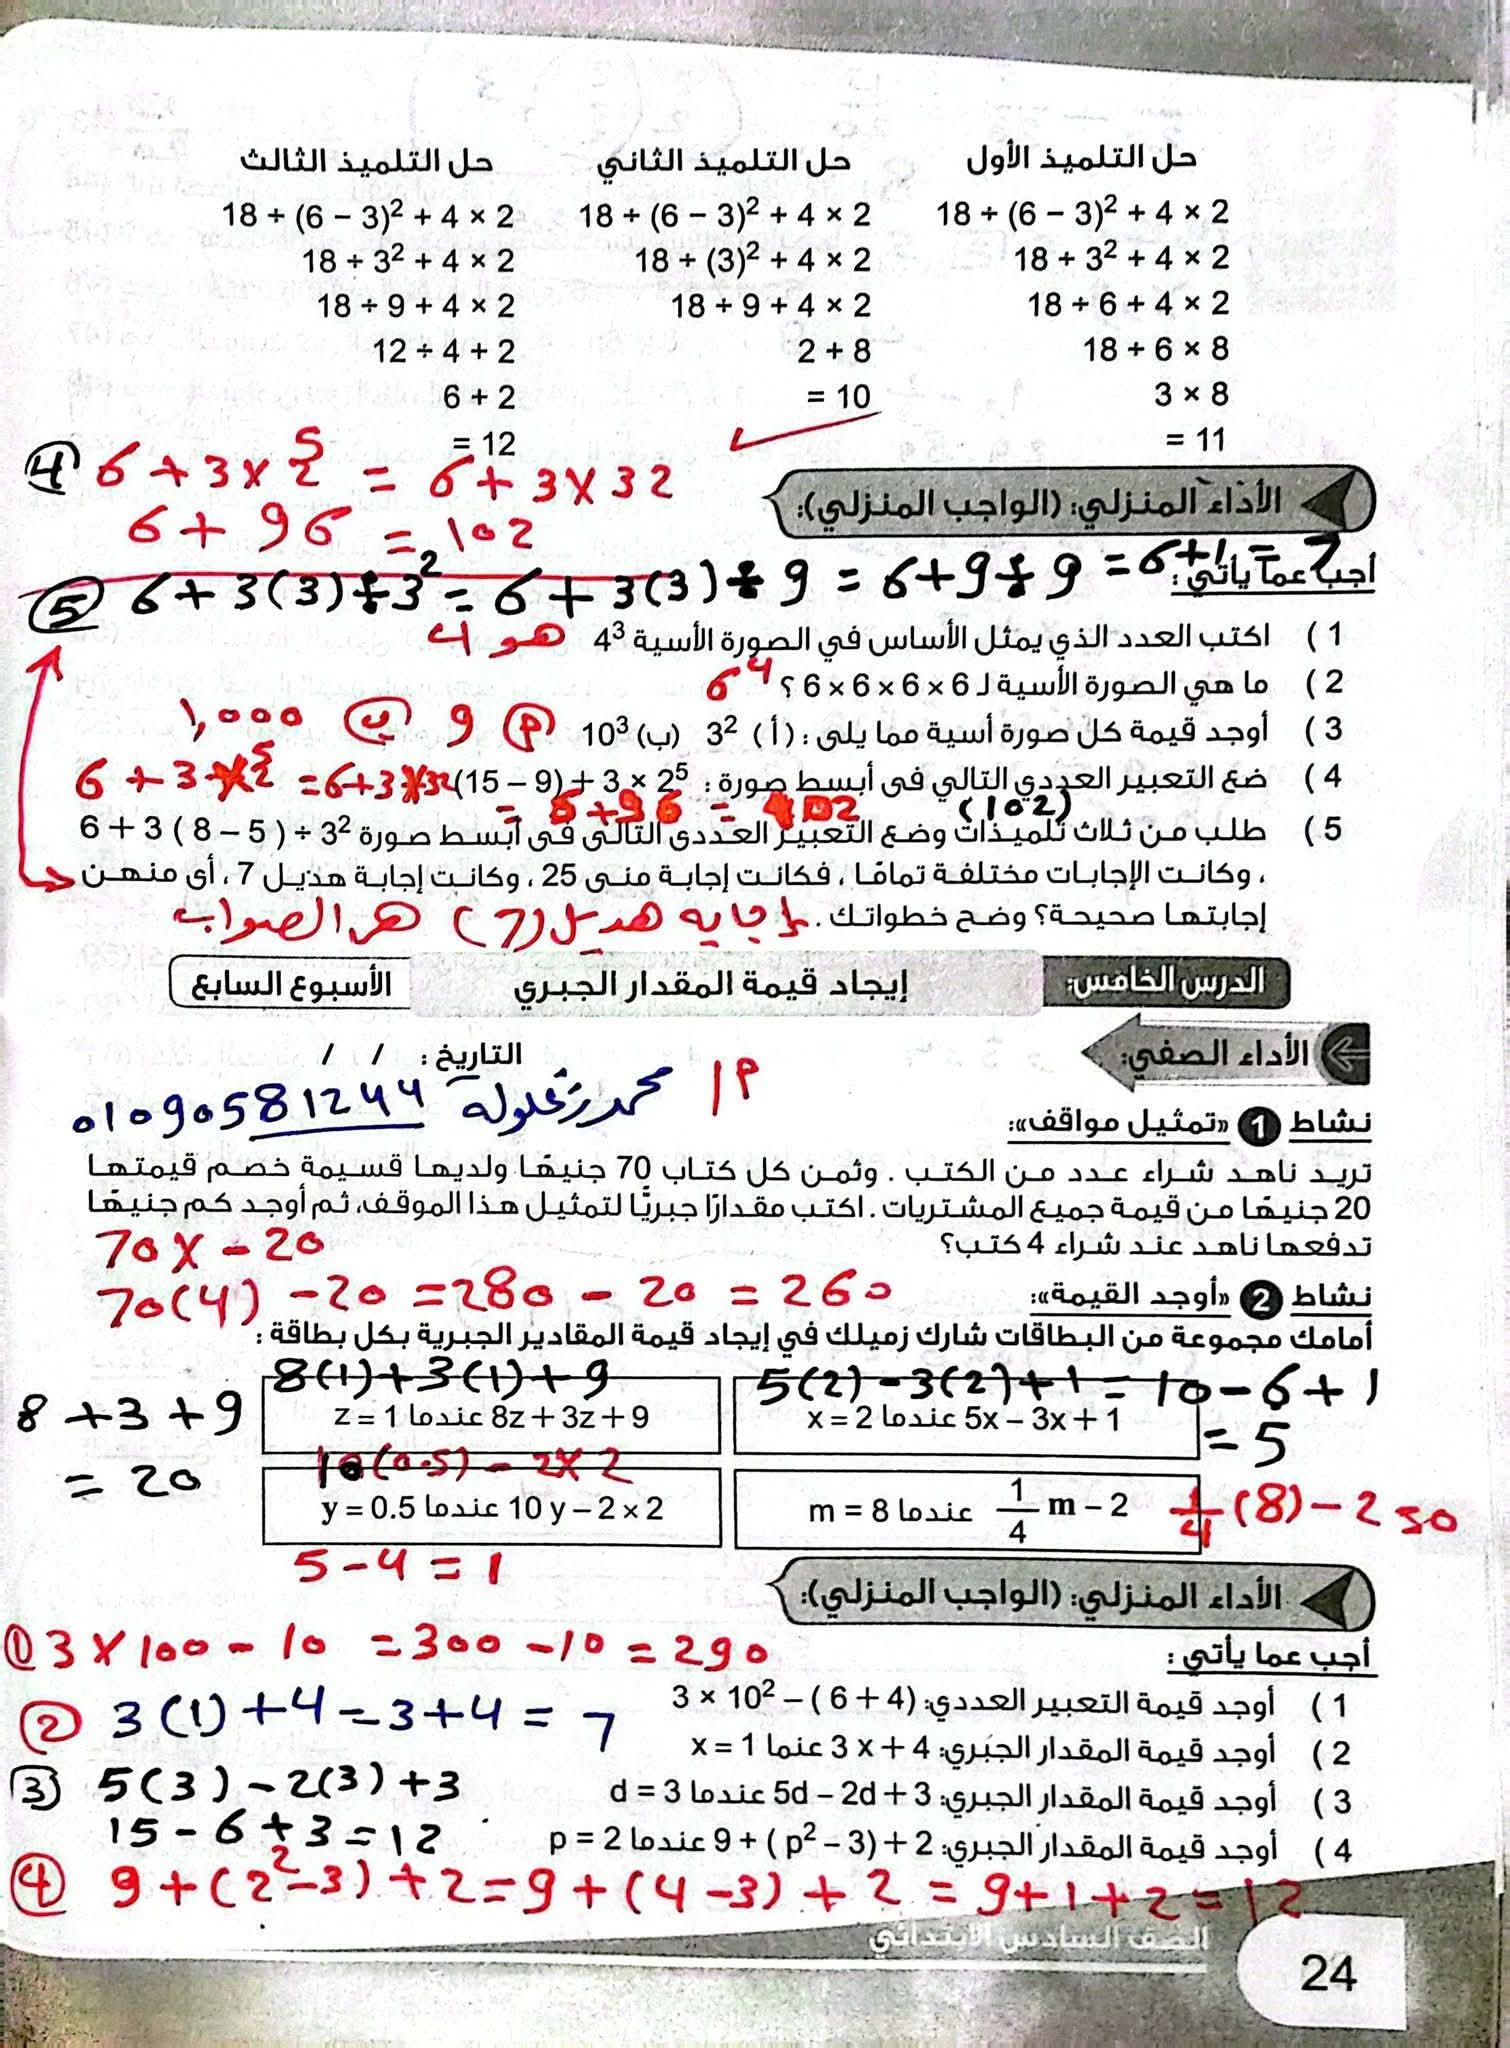 حل التلميذ الأول
18 ÷ (6 − 3)² + 4 × 2
18 ÷ 3² + 4 × 2
18 ÷ 6 + 4 × 2
18 ÷ 6 × 8
3 × 8
= 11
حل التلميذ الثاني
18 ÷ (6 − 3)² + 4 × 2
18 ÷ (3)² + 4 × 2
18 ÷ 9 + 4 × 2
2 + 8
= 10
حل التلميذ الثالث
18 ÷ (6 − 3)² + 4 × 2
18 ÷ 3² + 4 × 2
18 ÷ 9 + 4 × 2
12 ÷ 4 + 2
6 + 2
= 12
④ 6 + 3 × 2⁵ = 6 + 3 × 32
6 + 96 = 102
الأداء المنزلي: (الواجب المنزلي):
⑤ 6 + 3(3) ÷ 3² = 6 + 3(3) ÷ 9 = 6 + 9 ÷ 9 = 6 + 1 = 7
أجب عما يأتي:
1 ) اكتب العدد الذي يمثل الأساس في الصورة الأسية 4³ هو 4
2 ) ما هي الصورة الأسية لـ 6 × 6 × 6 × 6 ؟ 6⁴
3 ) أوجد قيمة كل صورة أسية مما يلى : ( أ ) 3² (ب) 10³ أ 9 ب 1,000
4 ) ضع التعبير العددي التالي فى أبسط صورة : (15 − 9) + 3 × 2⁵ 6 + 3 × 2⁵ = 6 + 3 × 32
= 6 + 96 = 102 (102)
5 ) طلب من ثلاث تلميذات وضع التعبير العددى التالى فى أبسط صورة 6 + 3 ( 8 − 5 ) ÷ 3²
، وكانت الإجابات مختلفة تمامًا ، فكانت إجابة منى 25 ، وكانت إجابة هديل 7 ، أى منهن
إجابتها صحيحة؟ وضح خطواتك . إجابه هديل (7) هى الصواب
الدرس الخامس: إيجاد قيمة المقدار الجبري الأسبوع السابع
الأداء الصفي:
التاريخ : / /
أ/ محمد زغلولة 01090581244
نشاط 1 «تمثيل مواقف»:
تريد ناهد شراء عدد من الكتب . وثمن كل كتاب 70 جنيهًا ولديها قسيمة خصم قيمتها
20 جنيهًا من قيمة جميع المشتريات . اكتب مقدارًا جبريًّا لتمثيل هذا الموقف، ثم أوجد كم جنيهًا
تدفعها ناهد عند شراء 4 كتب؟ 70x − 20
70(4) − 20 = 280 − 20 = 260
نشاط 2 «أوجد القيمة»:
أمامك مجموعة من البطاقات شارك زميلك في إيجاد قيمة المقادير الجبرية بكل بطاقة :
5(2) − 3(2) + 1 = 10 − 6 + 1
5x − 3x + 1 عندما x = 2
= 5
8(1) + 3(1) + 9
8z + 3z + 9 عندما z = 1
8 + 3 + 9
= 20
1/4 m − 2 عندما m = 8
1/4 (8) − 2 = 0
10(0.5) − 2 × 2
10 y − 2 × 2 عندما y = 0.5
5 − 4 = 1
الأداء المنزلي: (الواجب المنزلي):
أجب عما يأتي :
① 3 × 100 − 10 = 300 − 10 = 290
1 ) أوجد قيمة التعبير العددي: 3 × 10² − ( 6 + 4)
② 3(1) + 4 = 3 + 4 = 7
2 ) أوجد قيمة المقدار الجبري: 3 x + 4 عنما x = 1
3 5(3) − 2(3) + 3
3 ) أوجد قيمة المقدار الجبري: 5d − 2d + 3 عندما d = 3
15 − 6 + 3 = 12
4 ) أوجد قيمة المقدار الجبري: 9 + ( p² − 3) + 2 عندما p = 2
④ 9 + (2² − 3) + 2 = 9 + (4 − 3) + 2 = 9 + 1 + 2 = 12
الصف السادس الابتدائي
24